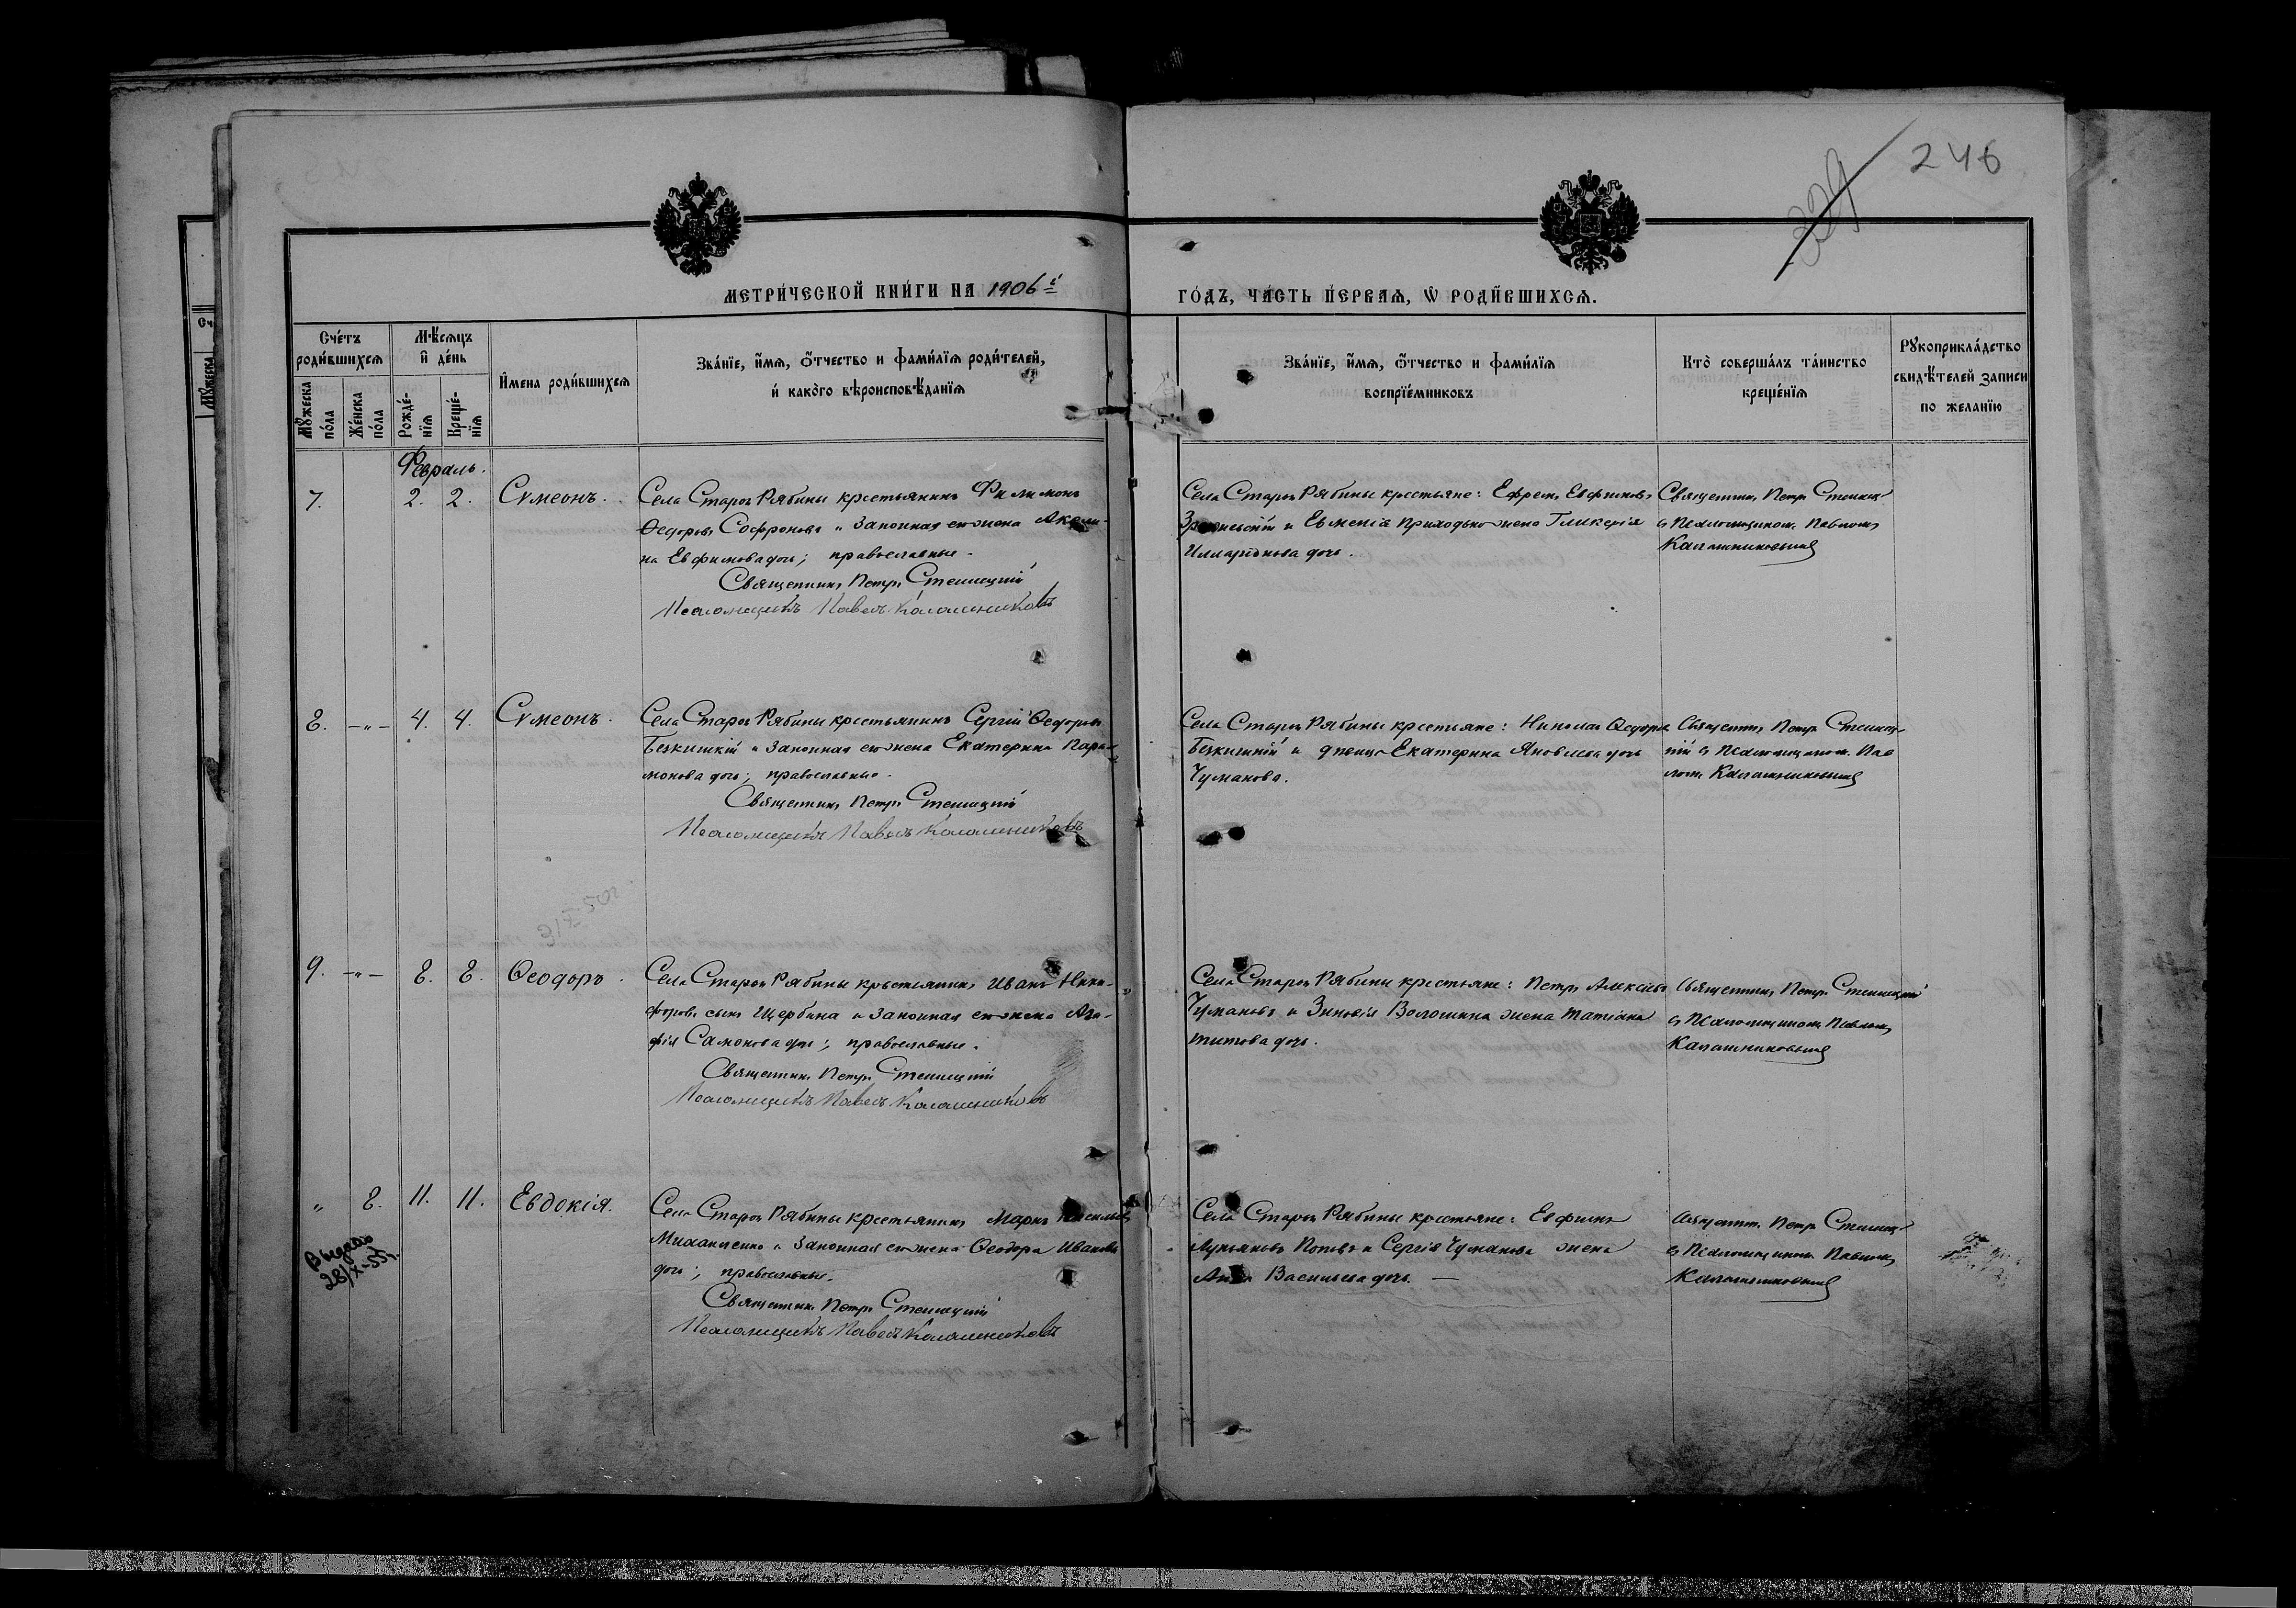 246
329
МЕТРИ́ЧЕСКОЙ КНИ́ГИ НА 1906й
ГО́ДЪ, ЧА́СТЬ ПЕ́РВАѦ, Ѡ РОДИ́ВШИХСѦ.
Сче́тъ роди́вшихсѧ
Мꙋ́жеска по́ла
Же́нска по́ла
Мѣ́сѧцъ и де́нь
Рожде́-нїѧ
Креще́-нїѧ
И́мена роди́вшихсѧ
Зва́нїе, и́мѧ, ѻ́тчество и фами́лїѧ роди́телей,
и како́го вѣроисповѣ́данїѧ
Зва́нїе, и́мѧ, ѻ́тчество и фами́лїѧ
воспрїе́мниковъ
Кто̀ соверша́лъ та́инство
креще́нїѧ
Рꙋкоприкла́дство
свидѣ́телей записи
по жела́нїю
Февраль.
7. 2. 2. Сѵмеонъ.
Села Старой Рябины крестьянинъ Филимонъ
Ѳедоровъ Софроновъ и законная его жена Акили-
на Евфимова дочь; православные.
Священникъ Петръ Стеницкій
Псаломщикъ Павелъ Калашниковъ
Села Старой Рябины крестьяне: Ефремъ Евфимовъ
и Евменія Приходько жена Гликерія
Иларіонова дочь.
Священникъ Петръ Стениц-
съ Псаломщикомъ Павломъ
Калашниковымъ
8. -"- 4. 4. Сѵмеонъ.
Села Старой Рябины крестьянинъ Сергій Ѳедоровъ
и законная его жена Екатерина Пара-
монова дочь; православные.
Священникъ Петръ Стеницкій
Псаломщикъ Павелъ Калашниковъ
Села Старой Рябины крестьяне: Николай Ѳедоровъ
и девица Екатерина Яковлева дочь
Чуманова.
Священникъ Петръ Стениц-
кій съ Псаломщикомъ Пав
ломъ Калашниковымъ
9. -"- 8. 8. Ѳеодоръ.
Села Старой Рябины крестьянинъ Иванъ Ники-
форовъ сынъ Щербина и законная его жена Ага-
фія Самонова дочь; православные.
Священникъ Петръ Стеницкій
Псаломщикъ Павелъ Калашниковъ
Села Старой Рябины крестьяне: Петръ Алексіевъ
Чумановъ и Зиновія Волошина жена Татіана
Титова дочь.
Священникъ Петръ Стеницкій
съ Псаломщикомъ Павломъ
Калашниковымъ
" 8. 11. 11. Евдокія.
Села Старой Рябины крестьянинъ Маркъ
Михайленко и законная его жена Ѳеодора Иванова
дочь; православные.
Священникъ Петръ Стеницкій
Псаломщикъ Павелъ Калашниковъ
Села Старой Рябины крестьяне: Евфимъ
Лукьяновъ Поповъ и Сергія Чуманова жена
Анна Васильева дочь. —
Священникъ Петръ Стениц-
съ Псаломщикомъ Павломъ
Калашниковымъ
Выдано
28/X-55г.